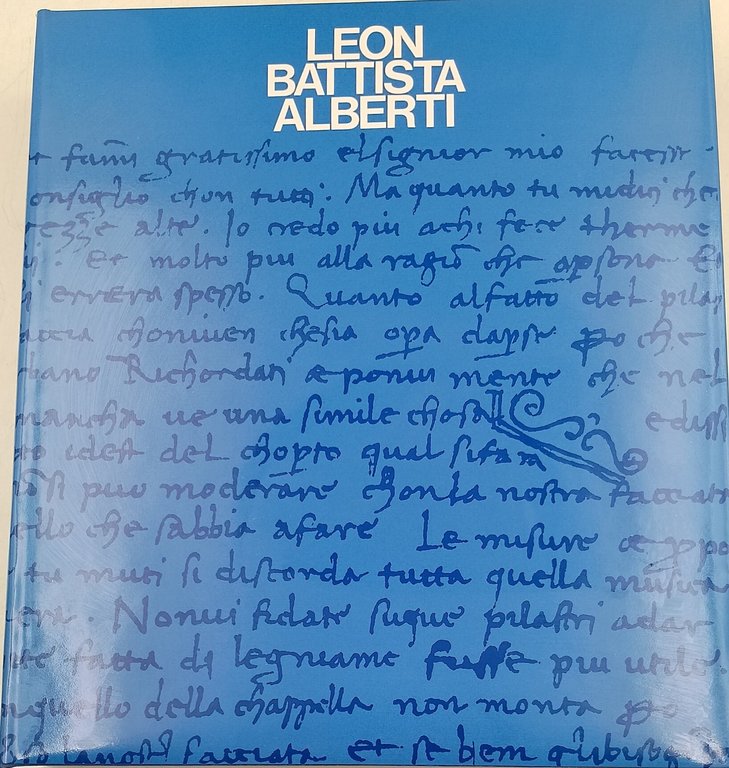 LEON
BATTISTA
ALBERTI
fami gratissimo elsignior mio facessi
onsiglio chon tutti: Ma quanto tu midici che
alte. Io credo piu achi fece therme
Et molto piu alla ragio che apsona Et
errera spesso. Quanto alfatto del pilas
accia chonivien chesia opa dapse po che
Richordati æ ponui mente che nel
mancha ve una simile chosa edissi
idest del chopto qual sifara
puo moderare chonla nostra facciata
ello che sabbia afare Le misure æ ppo
tu muti si discorda tutta quella musica
era. Nonui fidate suque pilastri adar
fatta di legniame fusse piu utile.
nquello della chappella non monta po
lanostra facciata et se bem